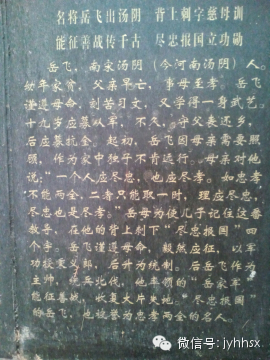 名将岳飞出汤阴 背上刺字慈母训
能征善战传千古 尽忠报国立功勋
岳飞，南宋汤阴（今河南汤阴）人。
幼年家贫，父亲早亡，事母至孝。岳飞
谨遵母命，刻苦习文，又学得一身武艺。
十九岁应募从军，不久，守父丧还乡，
后应募抗金。起初，岳飞因母亲需要照
顾，作为家中独子不肯远行。母亲对他
说，“一个人应尽忠，也应尽孝。如忠孝
不能两全，二者只能取一时，理应尽忠，
尽忠也是尽孝。”岳母为使儿子记住这番
教导，在他的背上刺下“尽忠报国”四
个字。岳飞谨遵母命，毅然应征，以军
功授秉义郎，后升为统制。后岳飞作为
主帅，统兵北伐，他率领的“岳家军”
能征善战，收复大片失地。“尽忠报国”
的岳飞，也被誉为忠孝两全的名人。
微信号: jyhhsx